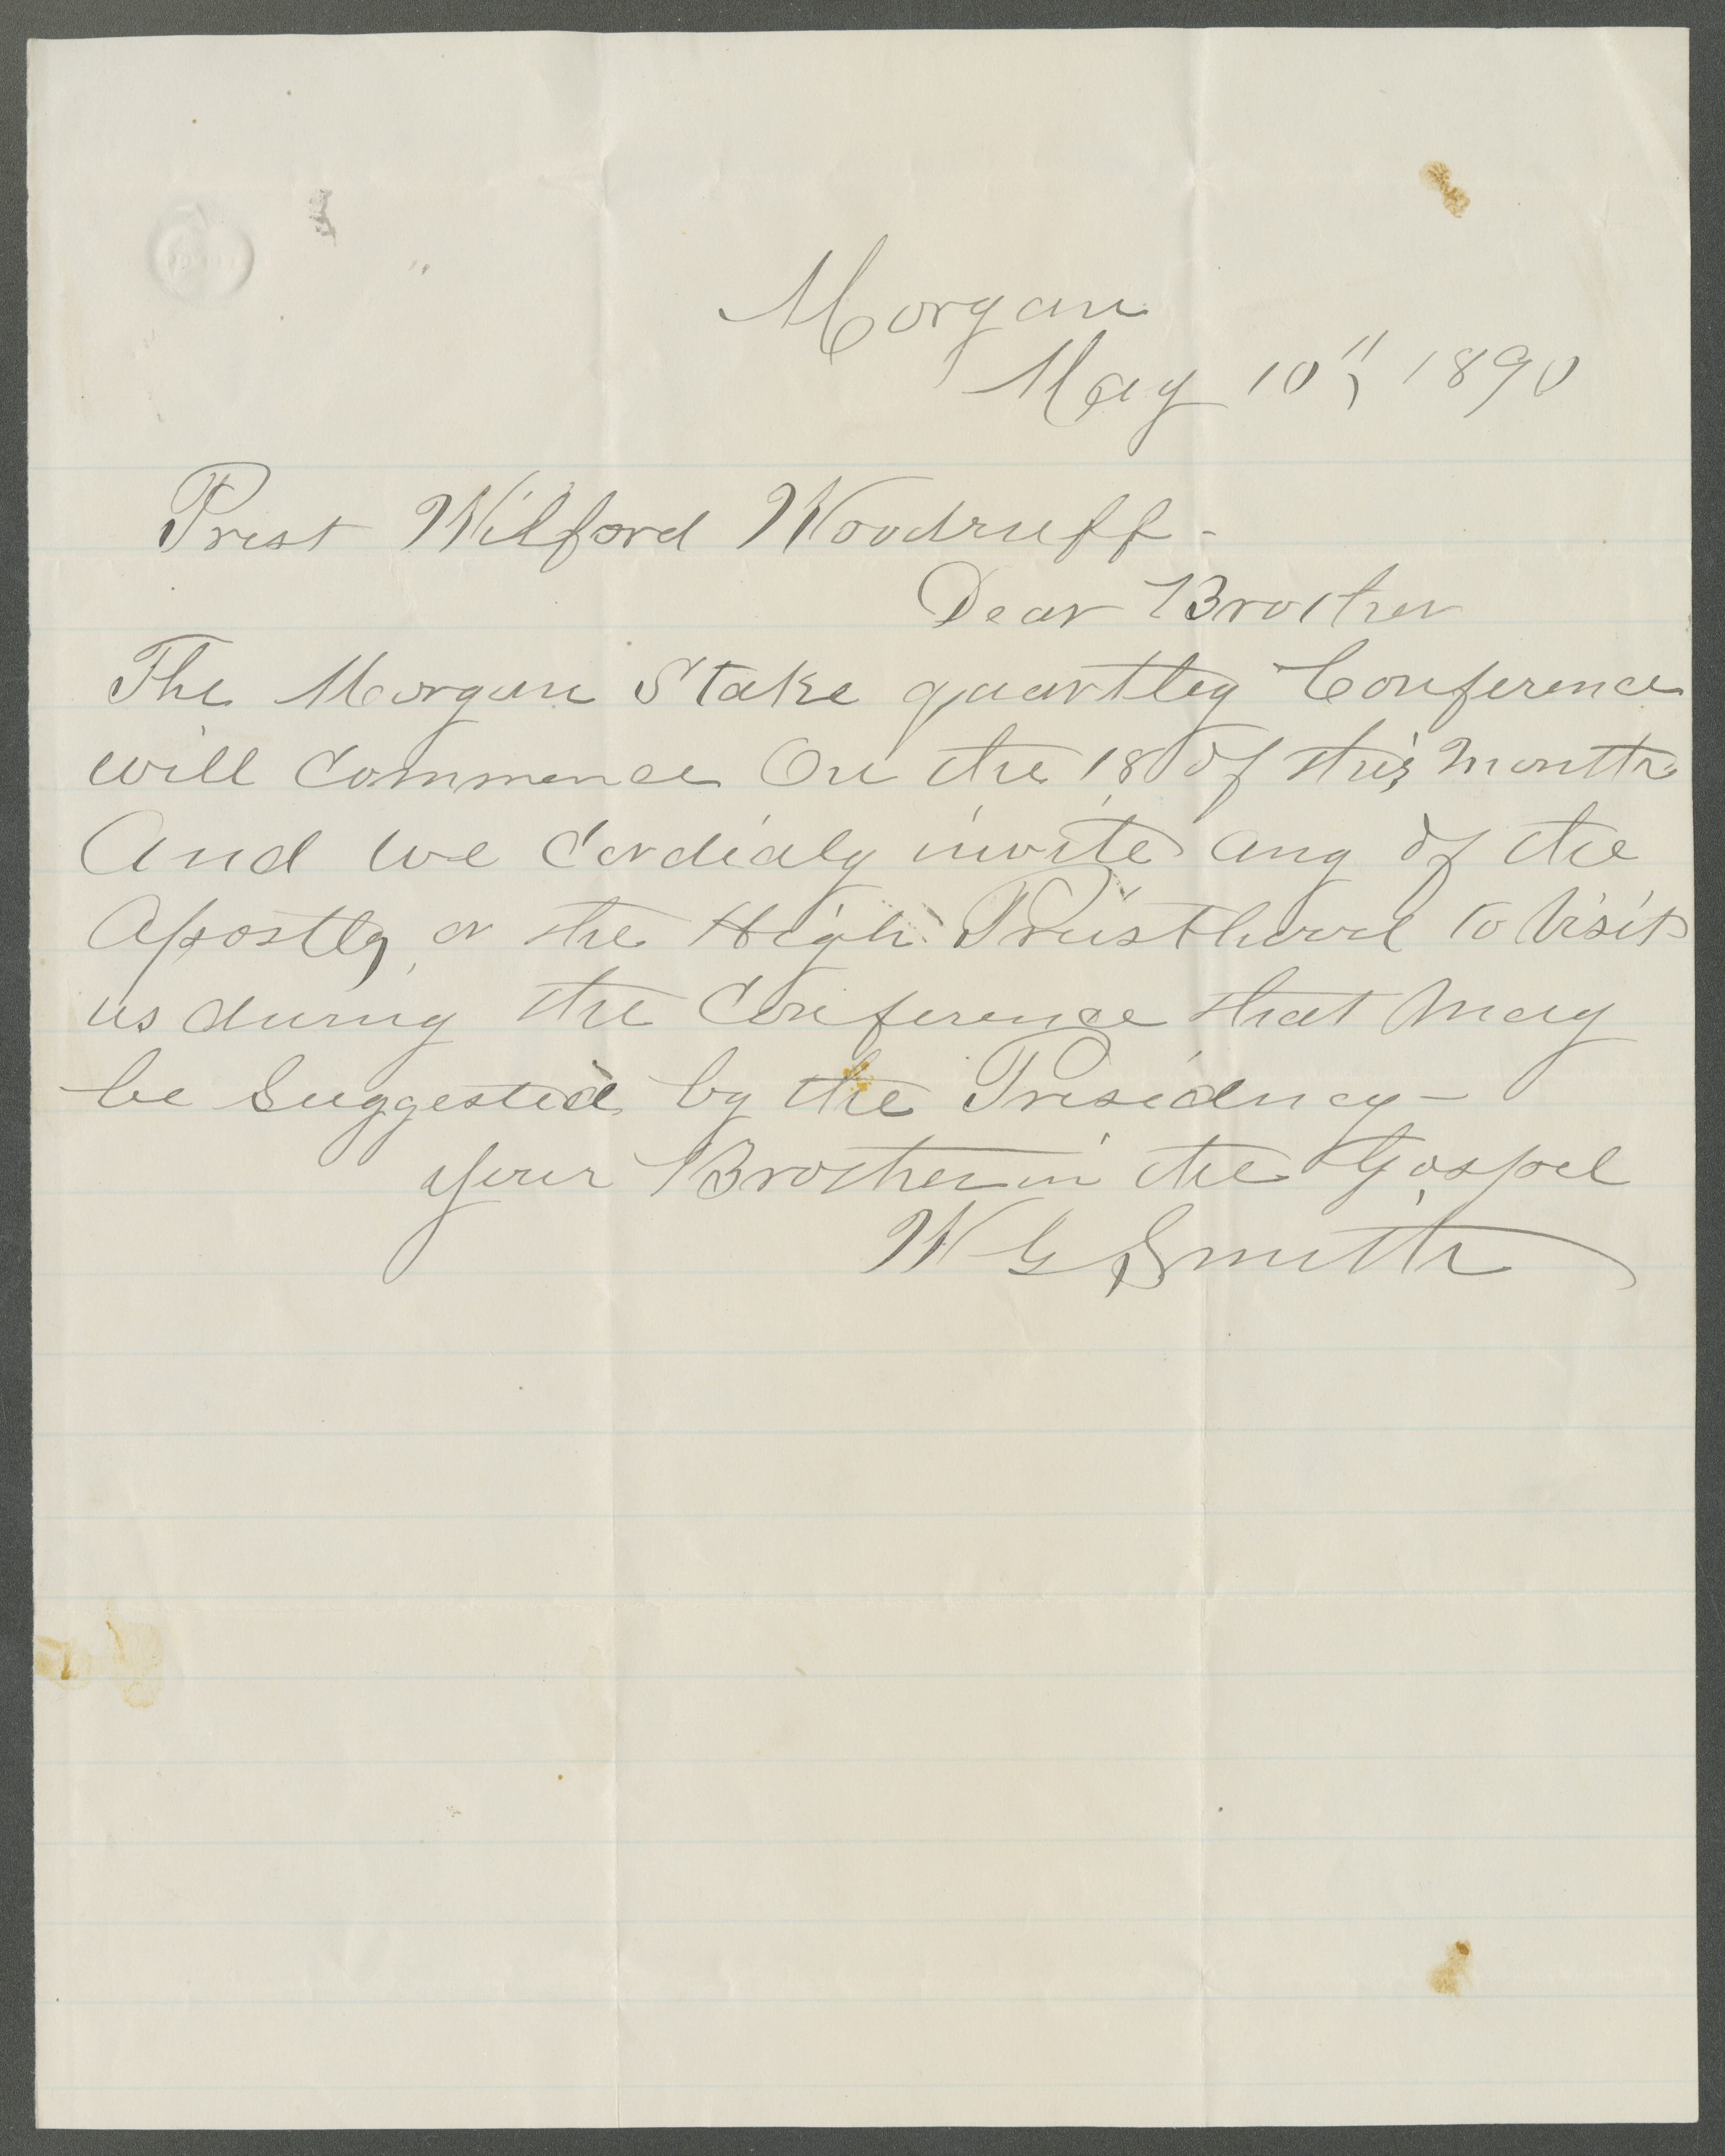 Morgan
May 10", 1890
Prest Wilford Woodruff-
Dear Brother
The Morgan Stake quartley Conference
will Commence On the 18 of this Month
And we Cordialy invite any of the
Apostles or the High Priesthood to Visit
us during the Conference that May
be Suggested by the Presidency-
your Brother in the Gospel
W G Smith